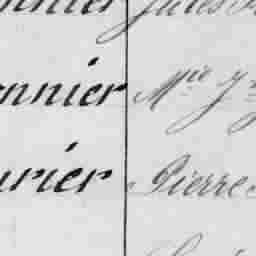 nnier Jules
onnier Mie J
urier Pierre